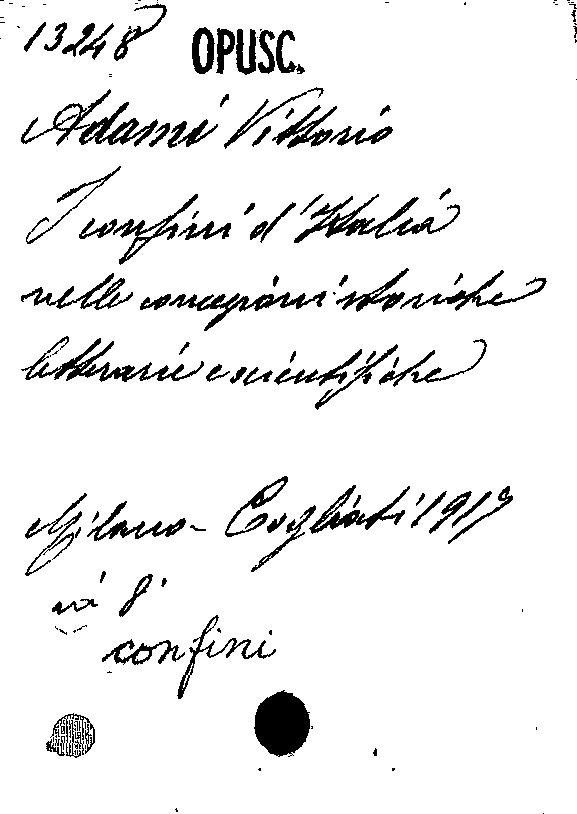 13248 OPUSC.
Adami Vittorio
I confini d'Italia
nelle concezioni storiche
letterarie e scientifiche
Milano - Cogliati 1917
in 8°
confini